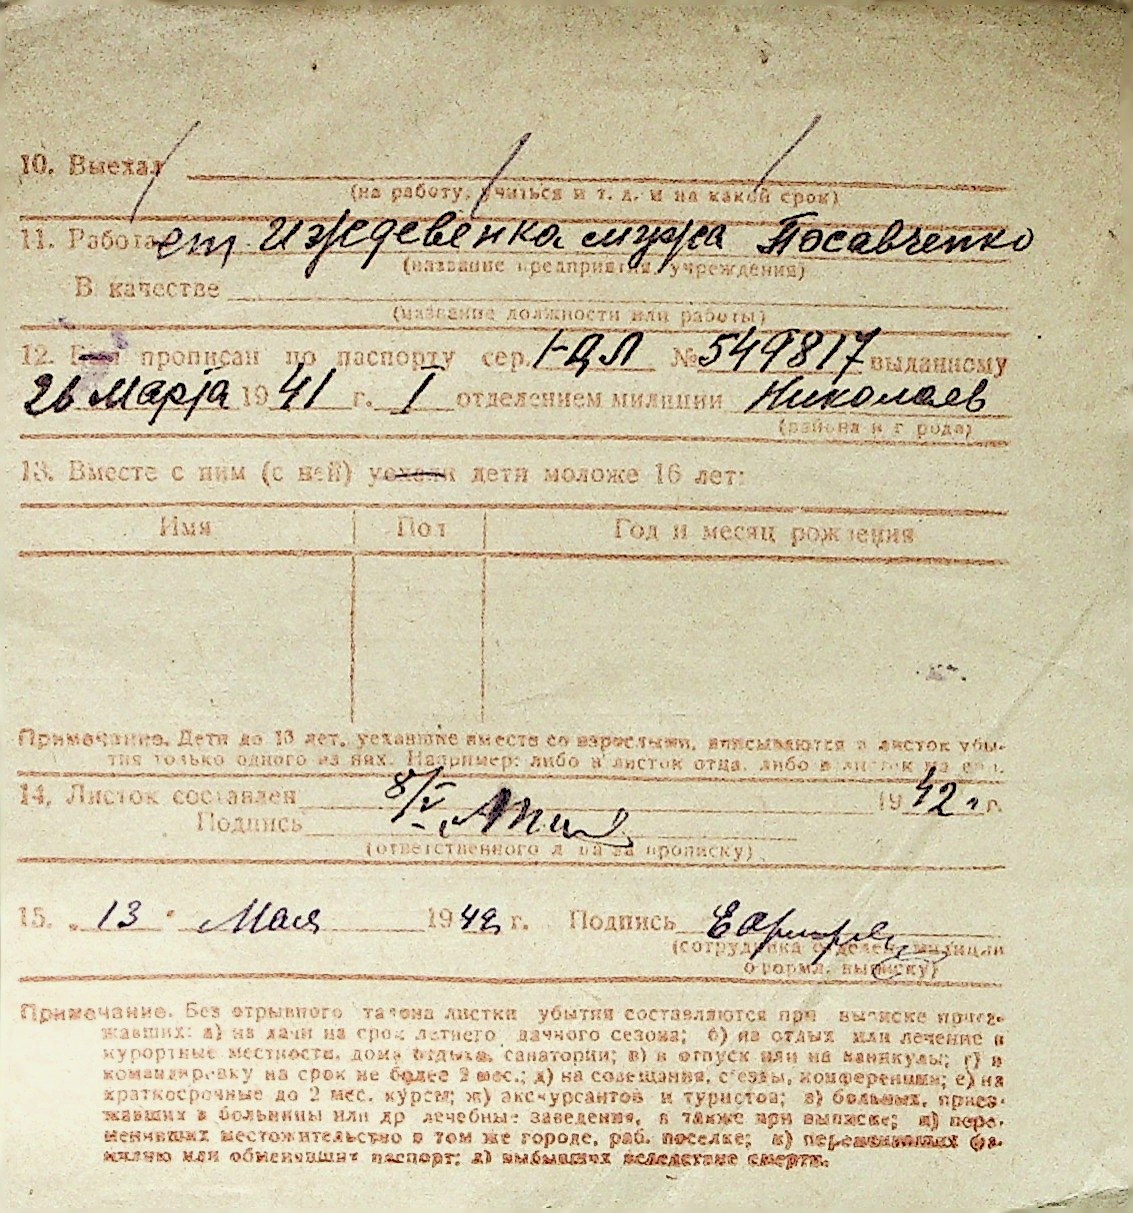 10. Выехал
(на работу, учиться и т. д. и на какой срок)
11. Работает Иждевенка мужа Посавченко
(название предприятия, учреждения)
В качестве
(название должности или работы)
12. Был прописан по паспорту сер. I-ДЛ № 549817 выданному
26 Марта 1941 г. I отделением милиции Николаев
(района и города)
13. Вместе с ним (с ней) уехали дети моложе 16 лет:
Имя Пол Год и месяц рождения
Примечание. Дети до 16 лет, уехавшие вместе со взрослыми, вписываются в листок убы-
тия только одного из них. Например: либо в листок отца, либо в листок матери.
14. Листок составлен 8/V 1942 г.
Подпись
(ответственного лица за прописку)
15. „13" Мая 1942 г. Подпись
(сотрудника отделен. милиции
оформл. выписку)
Примечание. Без отрывного талона листки убытия составляются при выписке приез-
жавших: а) на дачи на срок летнего дачного сезона; б) на отдых или лечение в
курортные местности, дома отдыха, санатории; в) в отпуск или на каникулы; г) в
командировку на срок не более 2 мес.; д) на совещания, с'езды, конференции; е) на
краткосрочные до 2 мес. курсы; ж) экскурсантов и туристов; з) больных, приез-
жавших в больницы или др лечебные заведения, а также при выписке; и) пере-
менивших местожительство в том же городе, раб. поселке; к) переменивших фа-
милию или обменивших паспорт; л) выбывших вследствие смерти.